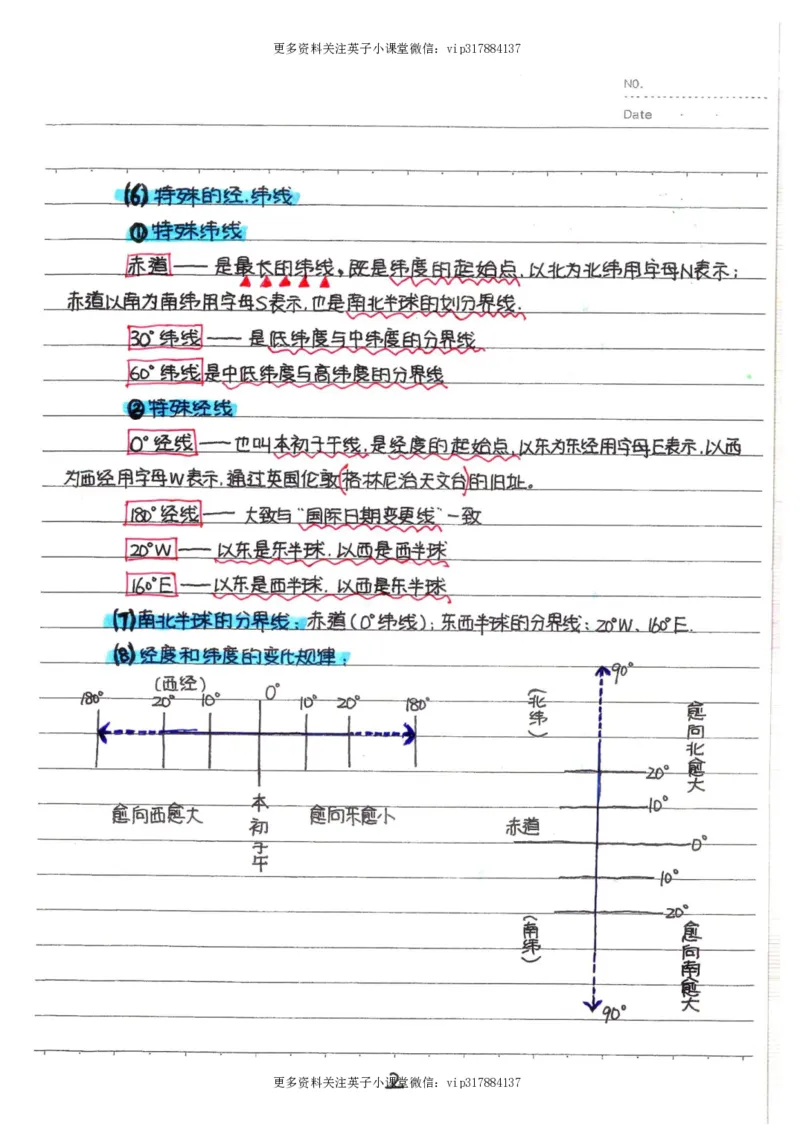 更多资料关注英子小课堂微信：vip317884137
NO.
Date
(6)特殊的经.纬线
①特殊纬线
赤道——是最长的纬线。既是纬度的起始点，以北为北纬用字母N表示；
赤道以南为南纬用字母S表示，也是南北半球的划分界线.
30°纬线——是低纬度与中纬度的分界线
60°纬线是中低纬度与高纬度的分界线
②特殊经线
0°经线——也叫本初子午线，是经度的起始点，以东为东经用字母E表示，以西
为西经用字母W表示，通过英国伦敦(格林尼治天文台)的旧址。
180°经线——大致与“国际日期变更线”一致
20°W——以东是东半球，以西是西半球
160°E——以东是西半球，以西是东半球
(7)南北半球的分界线：赤道(0°纬线)；东西半球的分界线：20°W、160°E.
(8)经度和纬度的变化规律：
(西经)
180° 20° 10° 0° 10° 20° 180°
愈向西愈大
本初子午
愈向东愈小
90°
(北纬)
愈向北愈大
20°
10°
赤道
0°
10°
20°
(南纬)
愈向南愈大
90°
2
更多资料关注英子小课堂微信：vip317884137